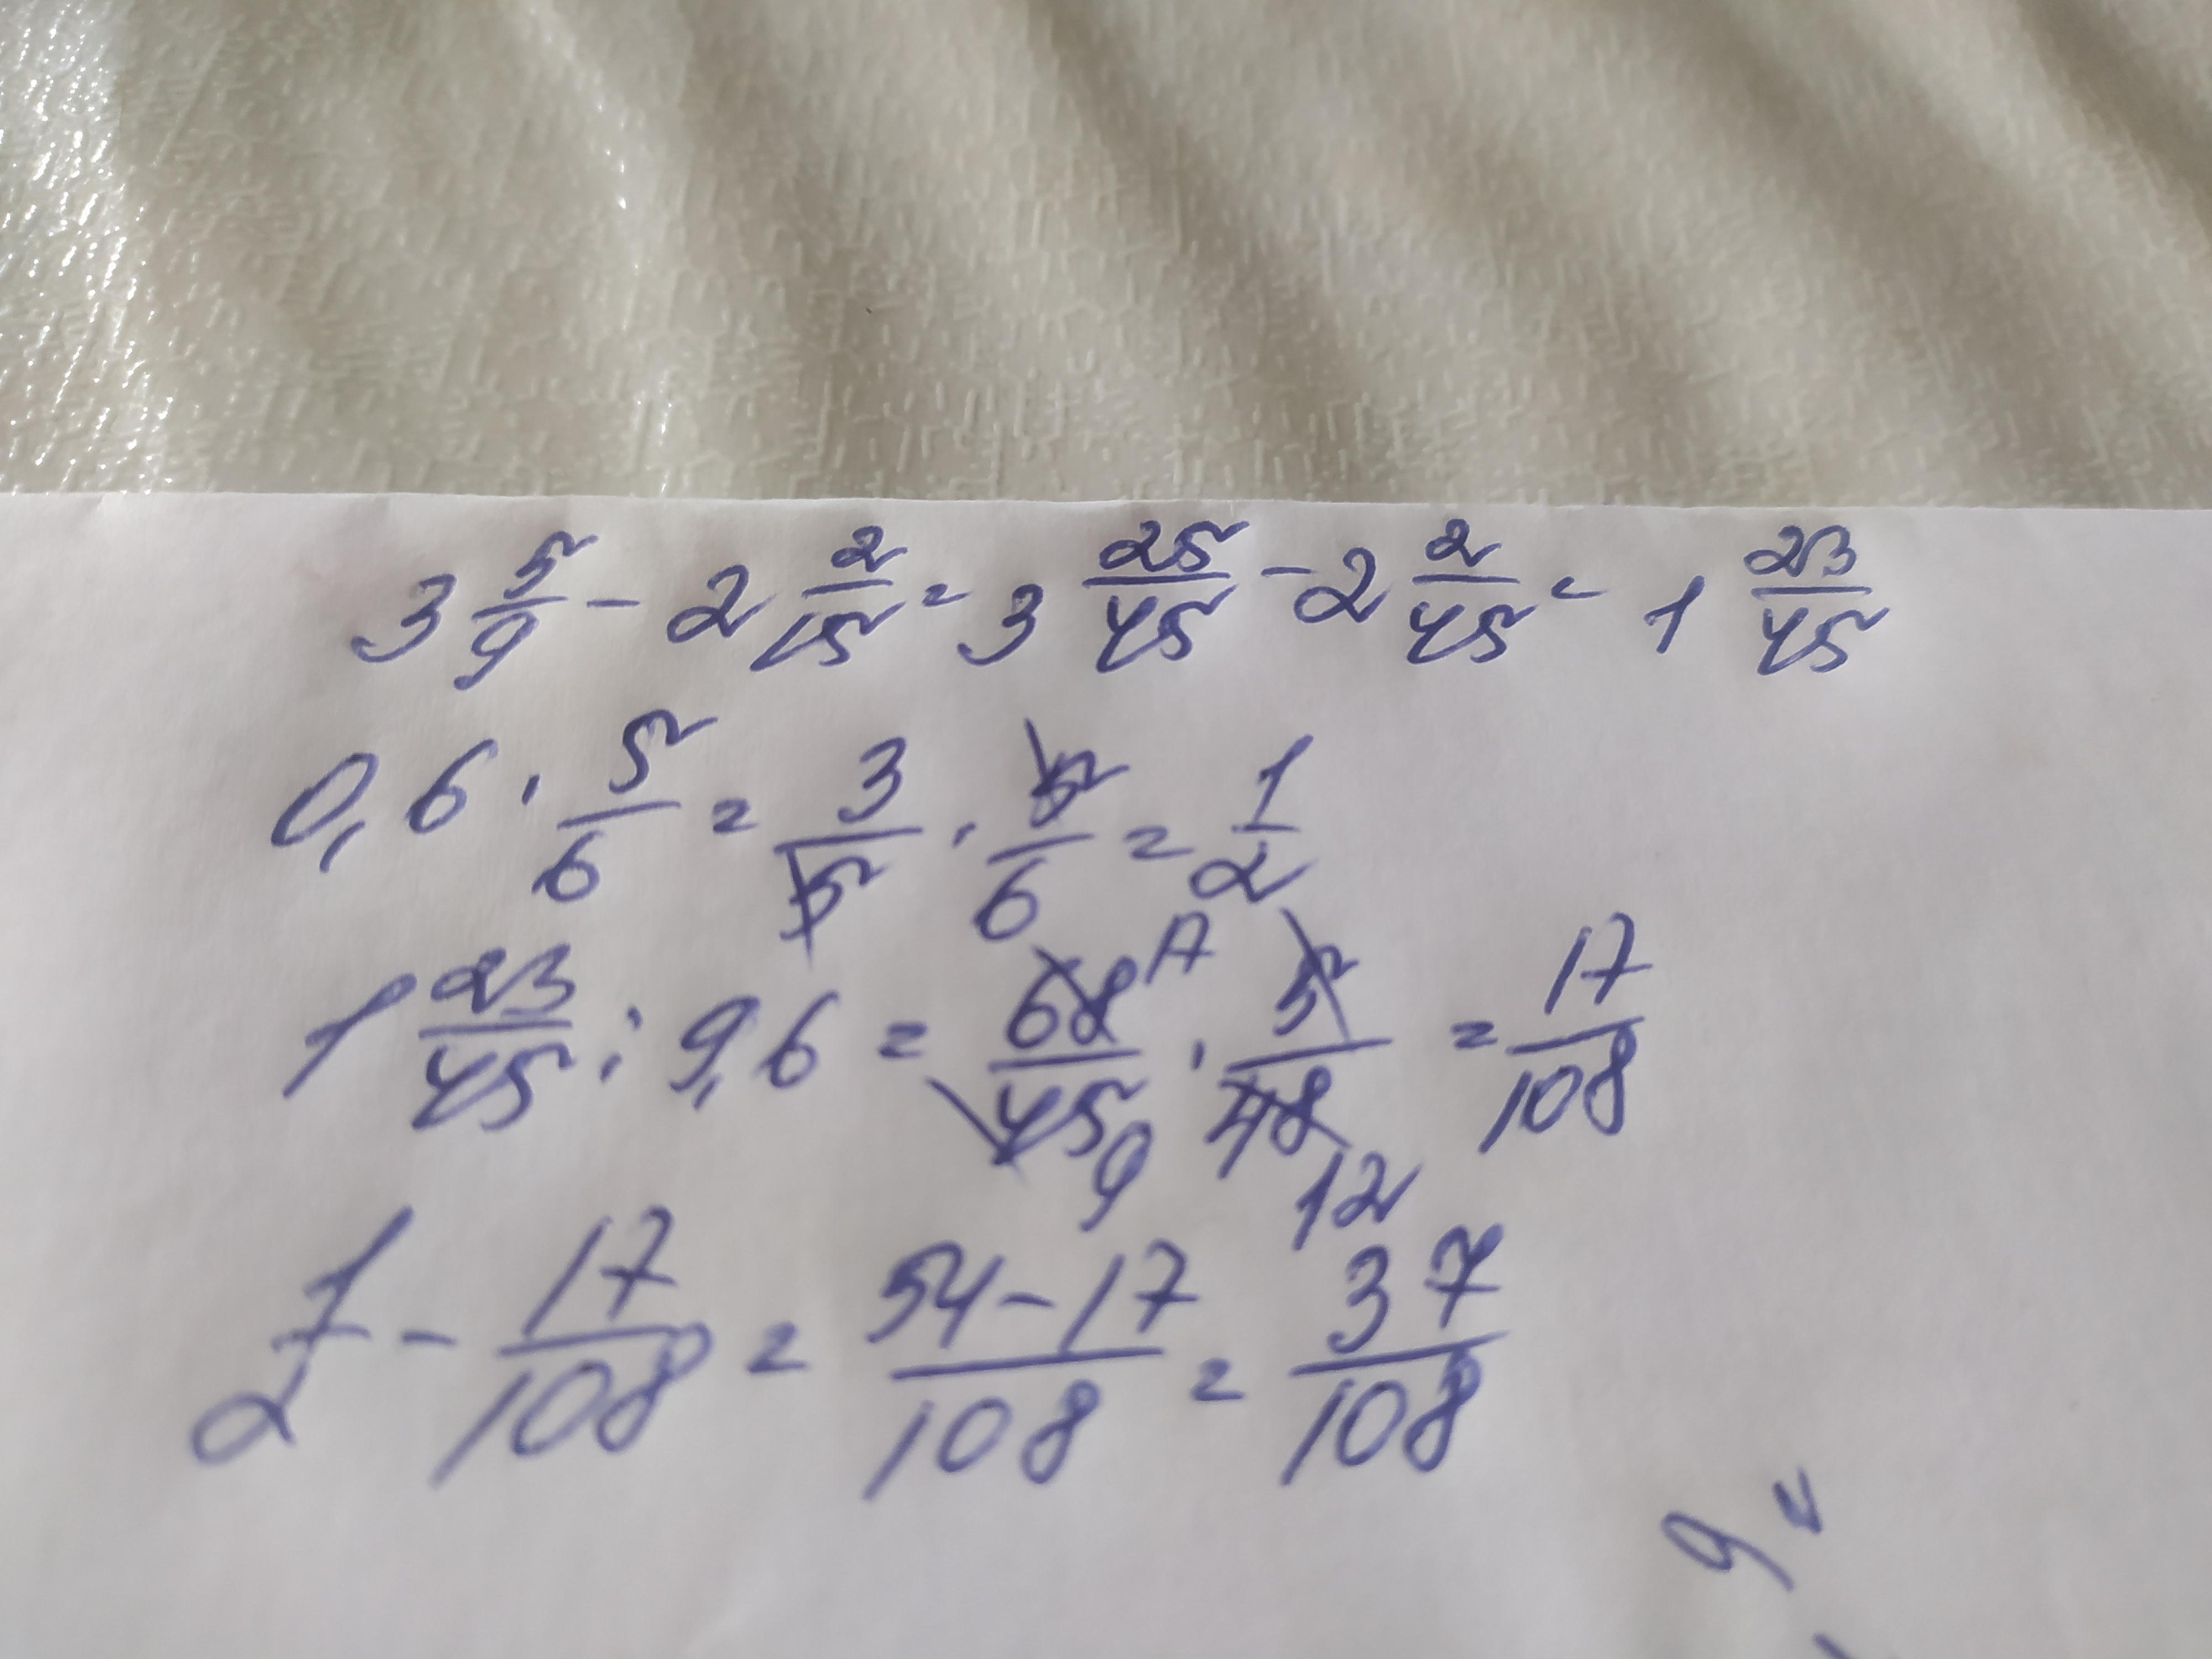 3 5/9 - 2 2/15 = 3 25/45 - 2 2/45 = 1 23/45
0,6 · 5/6 = 3/5 · 5/6 = 1/2
1 23/45 : 9,6 = 68 17/45 9 · 5/48 12 = 17/108
1/2 - 17/108 = 54-17/108 = 37/108